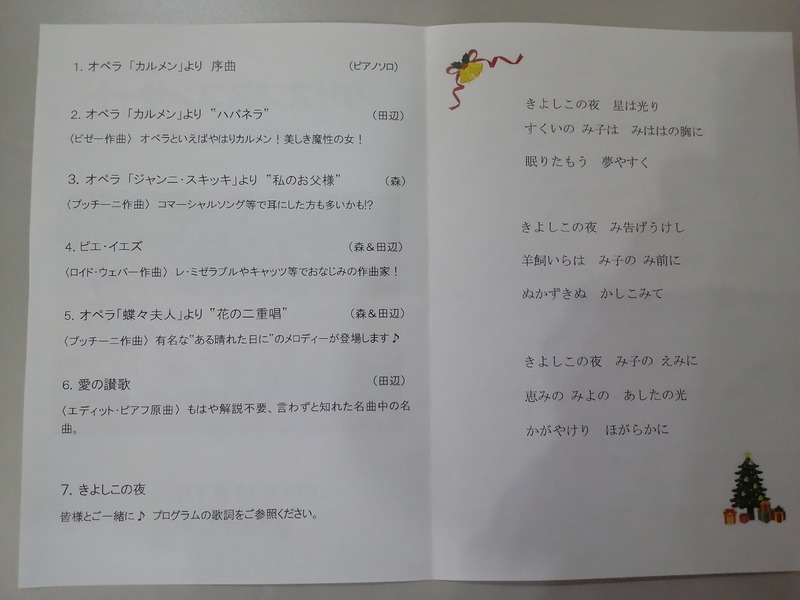 1. オペラ「カルメン」より 序曲 (ピアノソロ)
2. オペラ「カルメン」より “ハバネラ” (田辺)
〈ビゼー作曲〉 オペラといえばやはりカルメン！美しき魔性の女！
3. オペラ「ジャンニ・スキッキ」より “私のお父様” (森)
〈プッチーニ作曲〉 コマーシャルソング等で耳にした方も多いかも!?
4. ピエ・イエズ (森＆田辺)
〈ロイド・ウェバー作曲〉 レ・ミゼラブルやキャッツ等でおなじみの作曲家！
5. オペラ「蝶々夫人」より “花の二重唱” (森＆田辺)
〈プッチーニ作曲〉 有名な“ある晴れた日に”のメロディーが登場します♪
6. 愛の讃歌 (田辺)
〈エディット・ピアフ原曲〉 もはや解説不要、言わずと知れた名曲中の名
曲。
7. きよしこの夜
皆様とご一緒に♪ プログラムの歌詞をご参照ください。
きよしこの夜 星は光り
すくいの み子は みははの胸に
眠りたもう 夢やすく
きよしこの夜 み告げうけし
羊飼いらは み子の み前に
ぬかずきぬ かしこみて
きよしこの夜 み子の えみに
恵みの みよの あしたの光
かがやけり ほがらかに